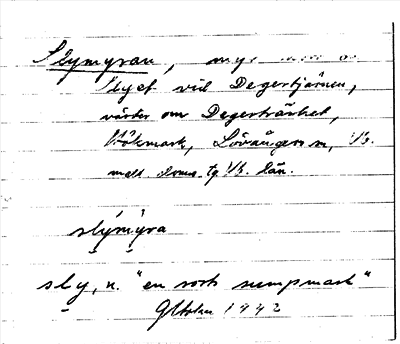 Slymyran, myr
Slyet vid Degertjärnen,
väster om Degerträsket,
Hökmark, Lövångers sn, Vb.
mell. doms. tg Vb. län.
slýmýra
sly, n. "en sorts sumpmark"
GHolm 1942